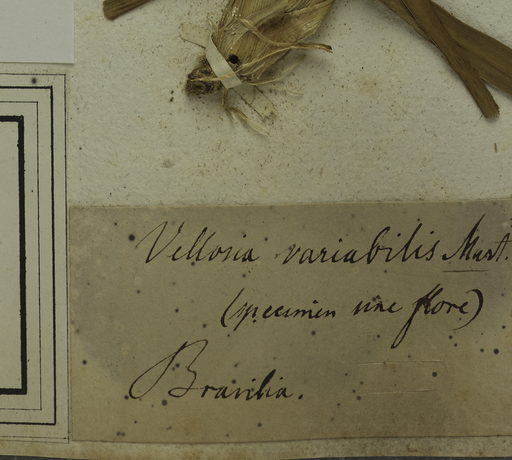 Vellosia variabilis Mart.
(specimen sine flore)
Brasilia.